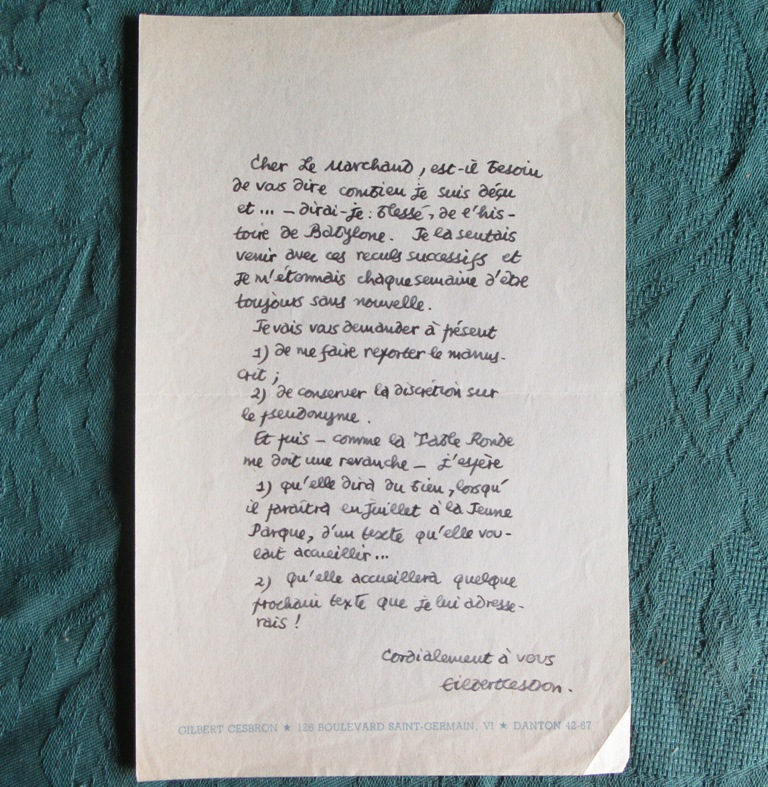 Cher Le Marchand, est-il besoin
de vous dire combien je suis déçu
et... — dirai-je : blessé, de l'his-
toire de Babylone. Je la sentais
venir avec ces reculs successifs et
je m'étonnais chaque semaine d'être
toujours sans nouvelle.
Je vais vous demander à présent
1) de me faire reporter le manus-
crit ;
2) de conserver la discrétion sur
le pseudonyme.
Et puis — comme la Table Ronde
me doit une revanche — j'espère
1) qu'elle dira du bien, lorsqu'
il paraîtra en Juillet à la Jeune
Parque, d'un texte qu'elle vou-
lait accueillir...
2) qu'elle accueillera quelque
prochain texte que je lui adresse-
rais !
Cordialement à vous
Gilbert Cesbron.
GILBERT CESBRON ★ 126 BOULEVARD SAINT-GERMAIN, VI ★ DANTON 42-67